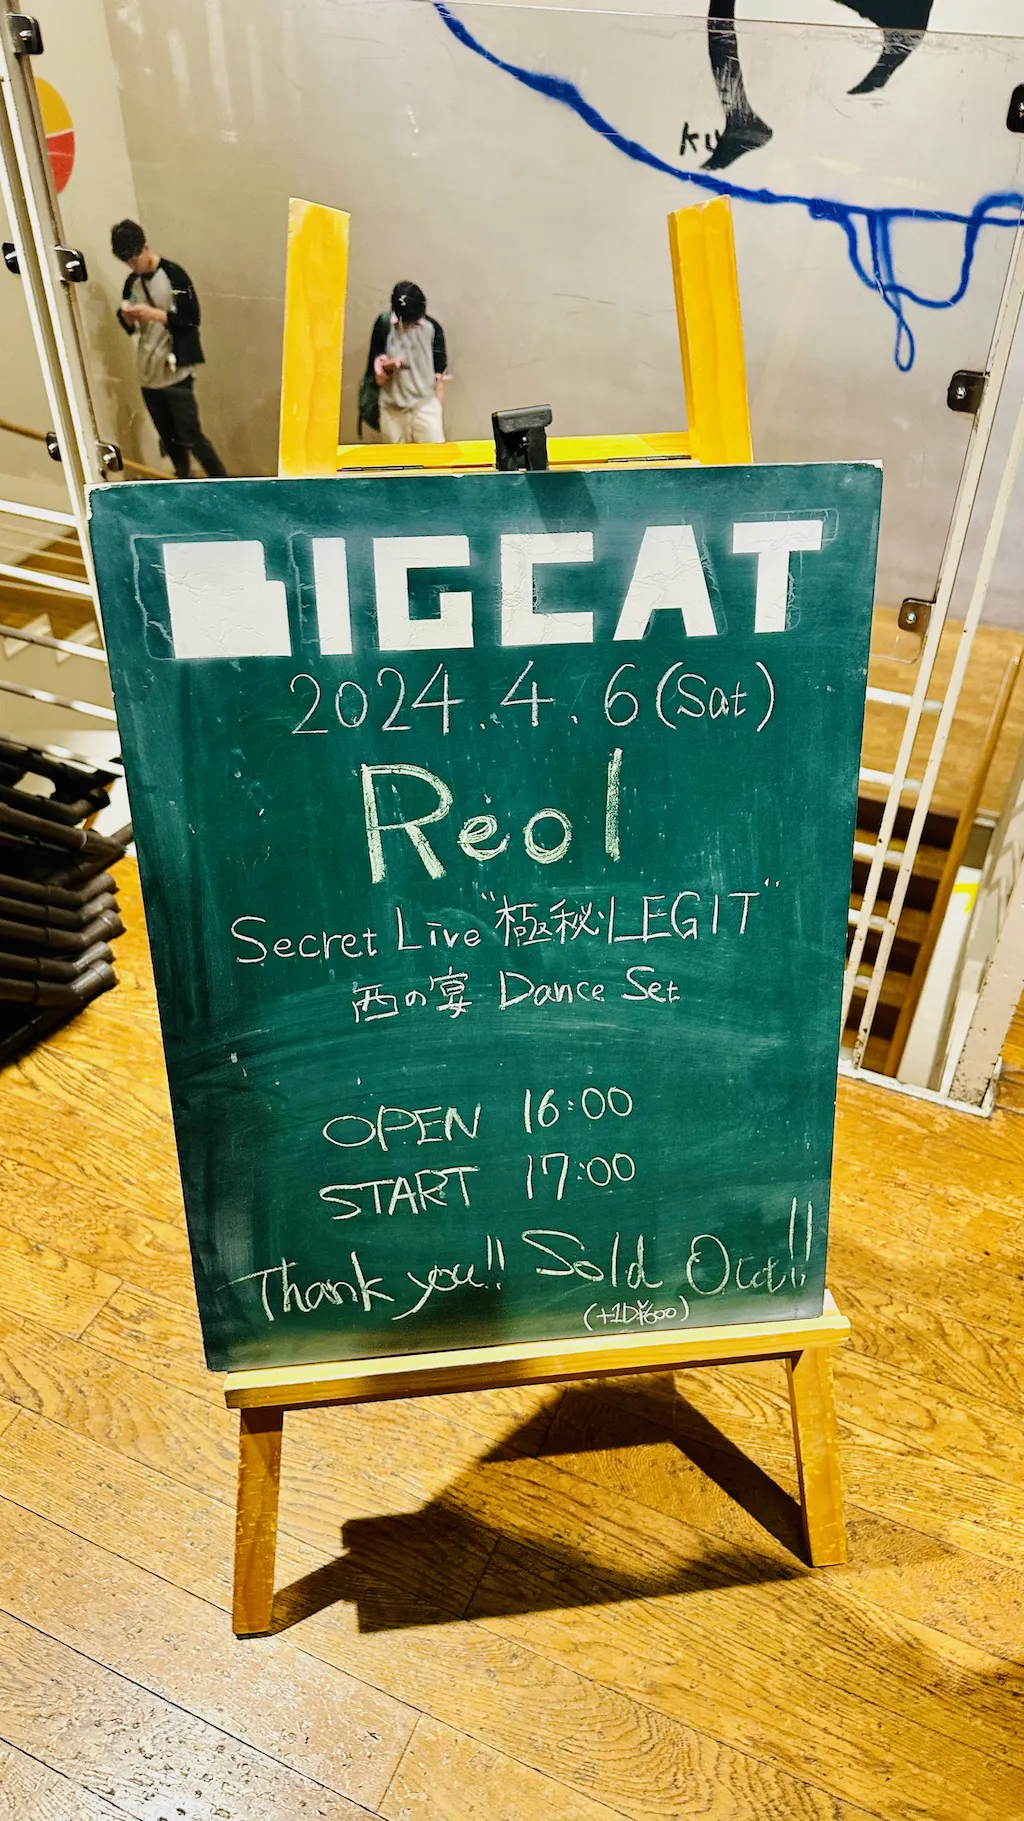 KU
BIGCAT
2024.4.6(Sat)
Reol
Secret Live "極秘LEGIT"
西の宴 Dance Set
OPEN 16:00
START 17:00
Thank you!! Sold Out!!
(+1D¥600)